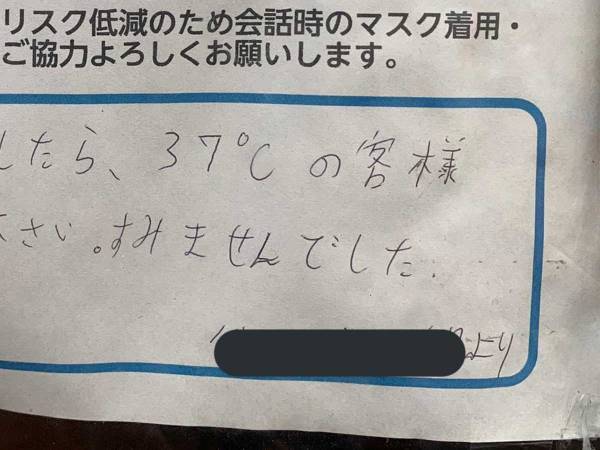 リスク低減のため会話時のマスク着用・
ご協力よろしくお願いします。
したら、37℃の客様
さい。すみませんでした.
より